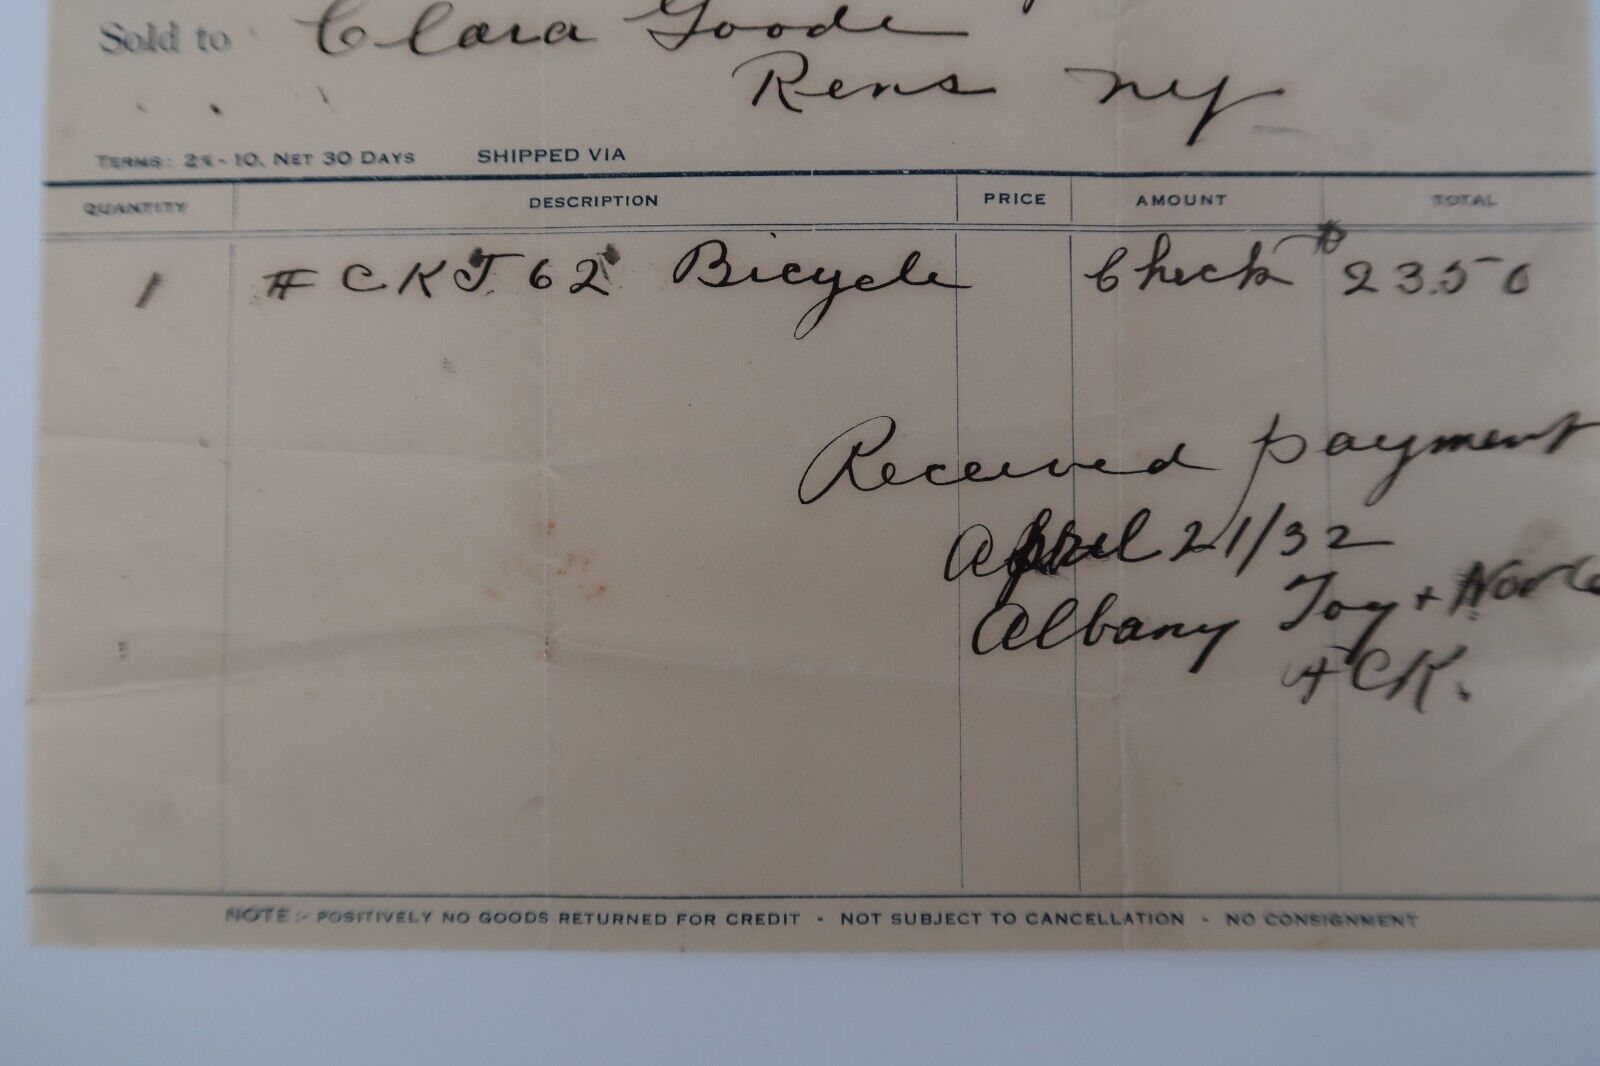 Sold to Clara Goode
Rens NY
TERMS: 2%-10, NET 30 DAYS SHIPPED VIA
QUANTITY DESCRIPTION PRICE AMOUNT TOTAL
1 # CKT 62 Bicycle Check 23.50
Received payment
April 21/32
Albany Toy + Nov Co
FCK.
NOTE:- POSITIVELY NO GOODS RETURNED FOR CREDIT - NOT SUBJECT TO CANCELLATION - NO CONSIGNMENT